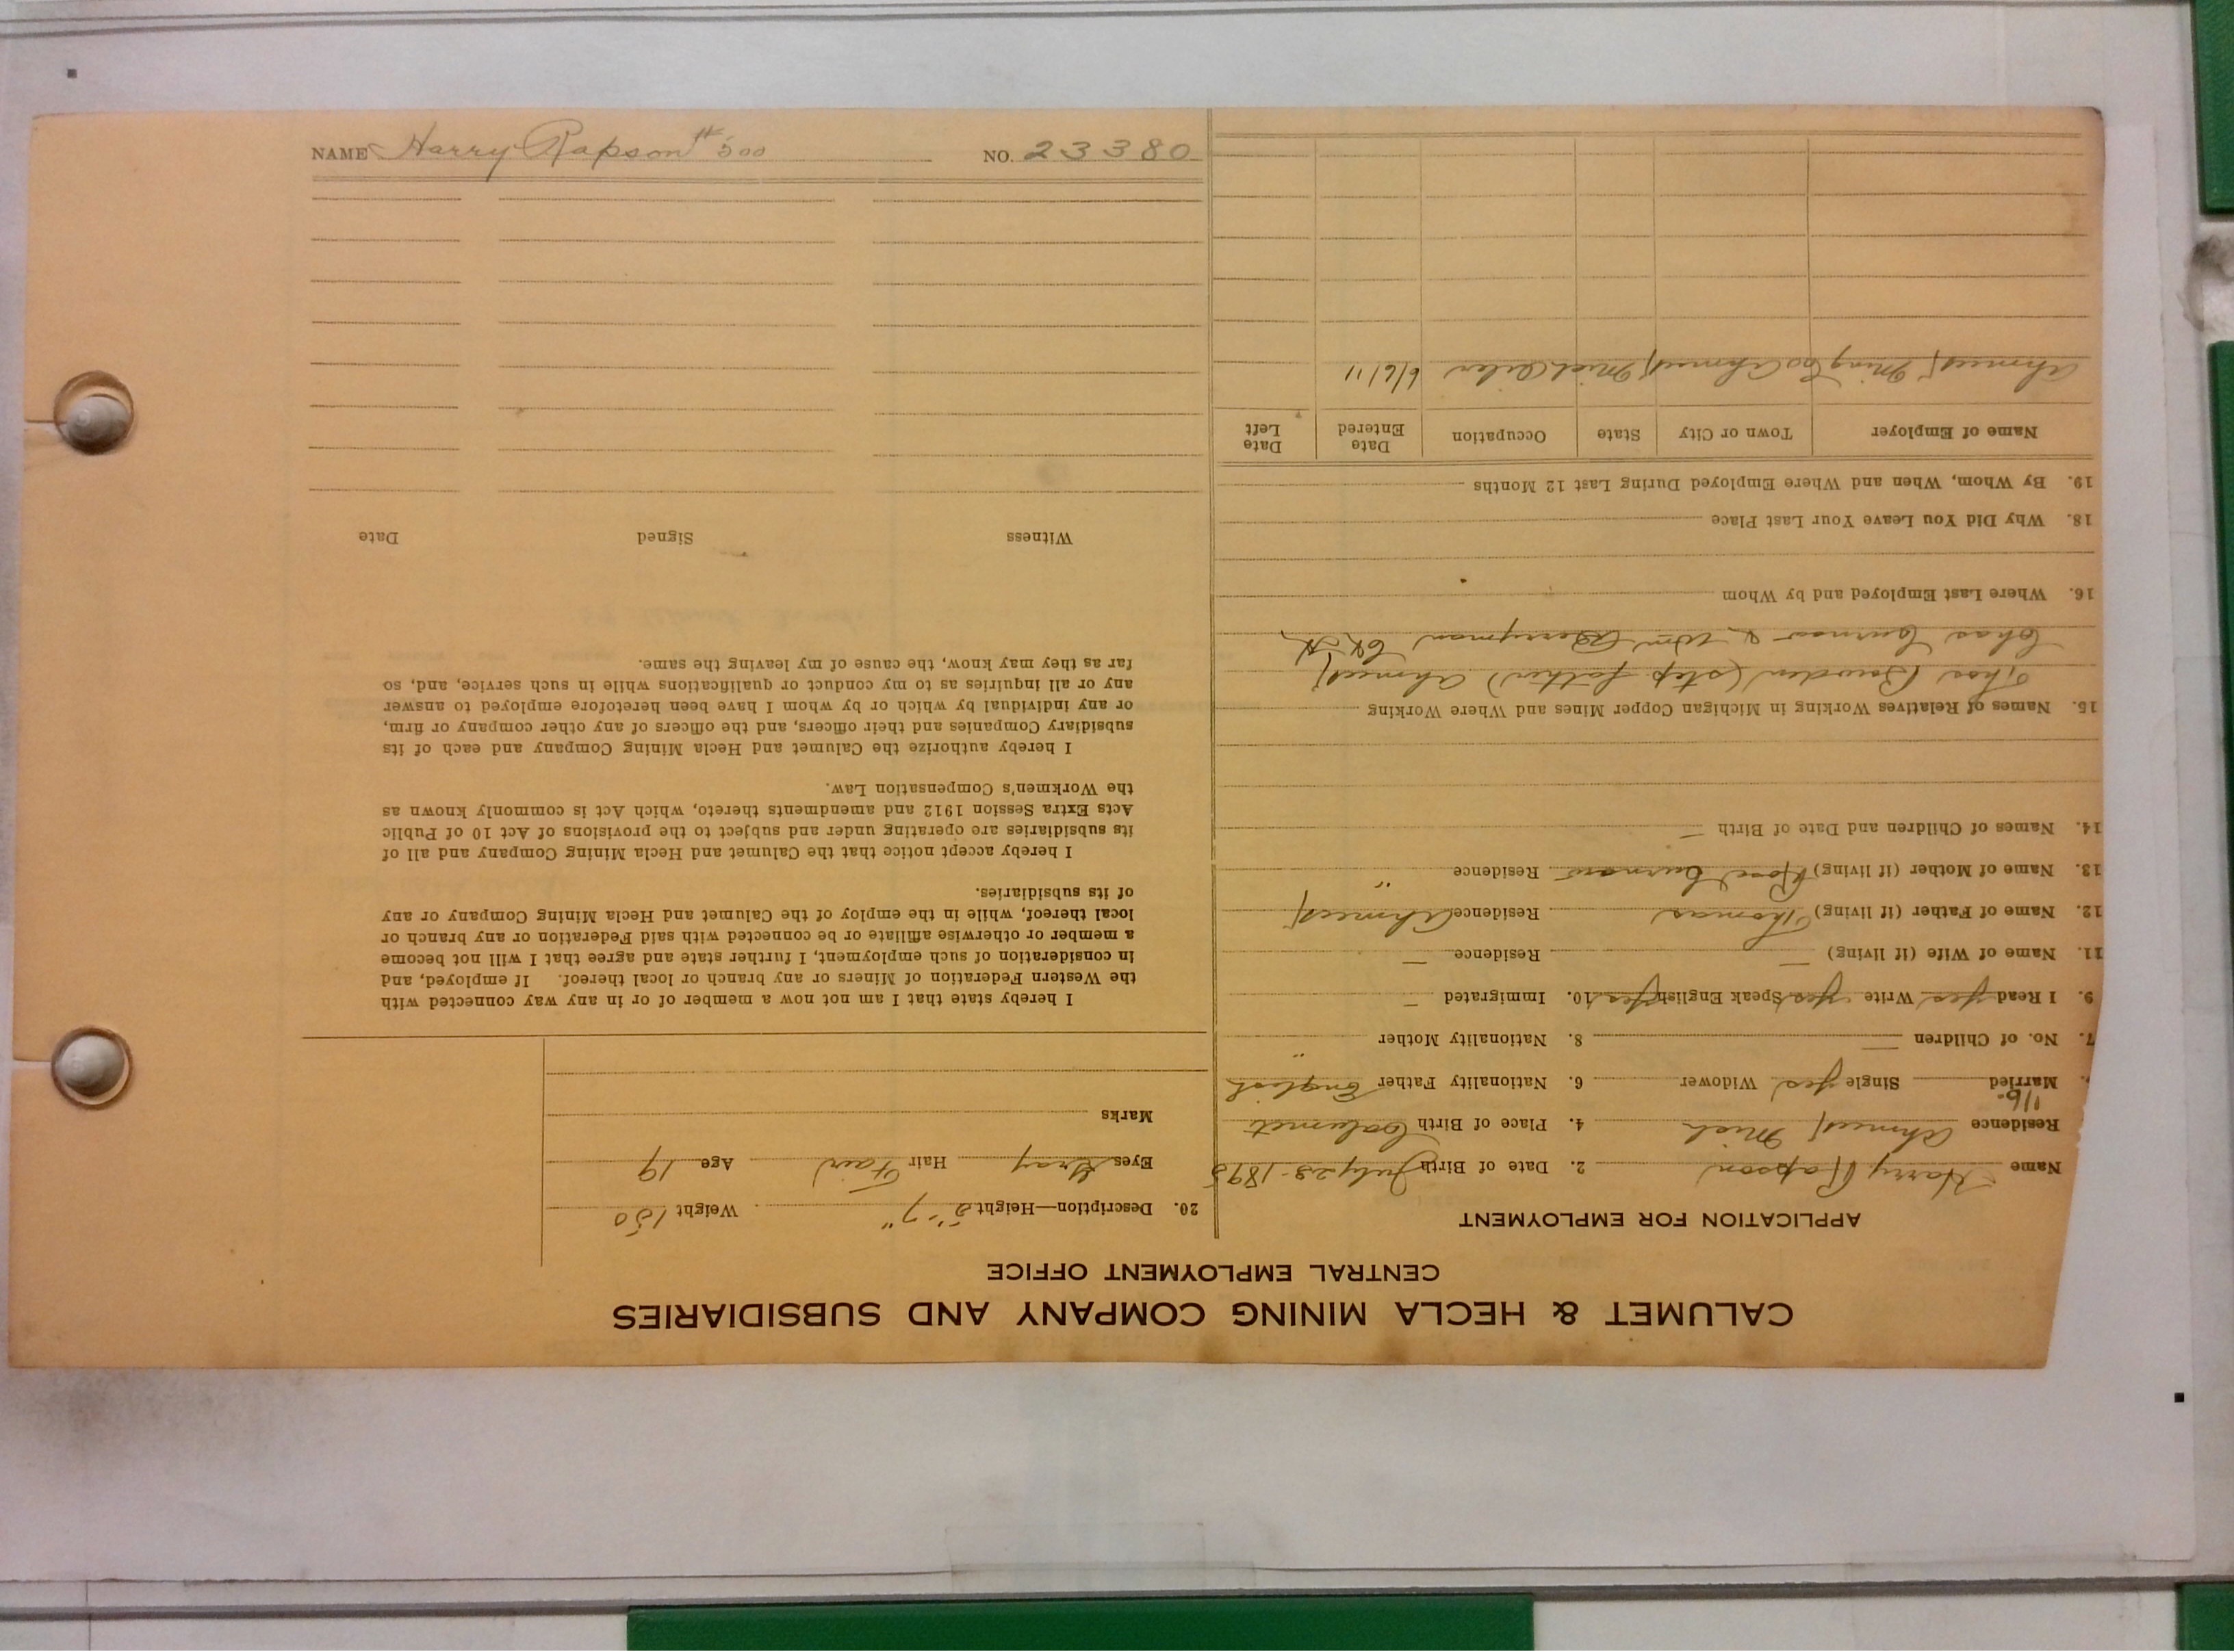 CALUMET & HECLA MINING COMPANY AND SUBSIDIARIES
CENTRAL EMPLOYMENT OFFICE
APPLICATION FOR EMPLOYMENT
Name Harry Rapson 2. Date of Birth July 23-1895
Residence Ahmeek Mich 4. Place of Birth Calumet
Married Single yes Widower 6. Nationality Father English
7. No. of Children — 8. Nationality Mother "
9. I Read yes Write yes Speak English yes 10. Immigrated —
11. Name of Wife (if living) — Residence —
12. Name of Father (if living) Thomas Residence Ahmeek
13. Name of Mother (if living) Rose Curnow Residence "
14. Names of Children and Date of Birth —
15. Names of Relatives Working in Michigan Copper Mines and Where Working
Thos Bowden (step father) Ahmeek
Chas Curnow & Wm Berryman C & H
16. Where Last Employed and by Whom
18. Why Did You Leave Your Last Place
19. By Whom, When and Where Employed During Last 12 Months
Name of Employer Town or City State Occupation Date Entered Date Left
Ahmeek Ming Co Ahmeek Mich Oiler 6/6/11
20. Description—Height 5' 7" Weight 150
Eyes Gray Hair Fair Age 19
Marks
I hereby state that I am not now a member of or in any way connected with
the Western Federation of Miners or any branch or local thereof. If employed, and
in consideration of such employment, I further state and agree that I will not become
a member or otherwise affiliate or be connected with said Federation or any branch or
local thereof, while in the employ of the Calumet and Hecla Mining Company or any
of its subsidiaries.
I hereby accept notice that the Calumet and Hecla Mining Company and all of
its subsidiaries are operating under and subject to the provisions of Act 10 of Public
Acts Extra Session 1912 and amendments thereto, which Act is commonly known as
the Workmen's Compensation Law.
I hereby authorize the Calumet and Hecla Mining Company and each of its
subsidiary Companies and their officers, and the officers of any other company or firm,
or any individual by which or by whom I have been heretofore employed to answer
any or all inquiries as to my conduct or qualifications while in such service, and, so
far as they may know, the cause of my leaving the same.
Witness Signed Date
NAME Harry Rapson # 500 NO. 23380